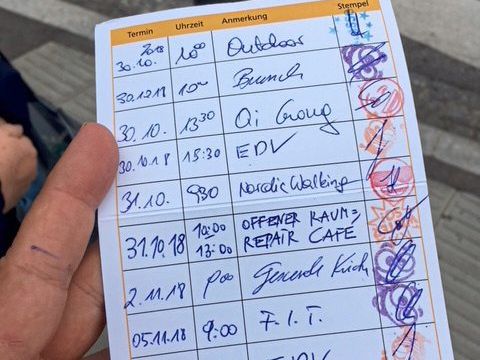 Termin Uhrzeit Anmerkung Stempel
30.10. 2018 10 00 Outdoor
30.10.18 Brunch
30.10. 13 30 Qi Gong
30.10.18 15:30 EDV
31.10. 9 30 Nordic Walking
31.10.18 10:00 13:00 OFFENER RAUM = REPAIR CAFE
2.11.18 9 00
05.11.18 9:00 F.I.T.